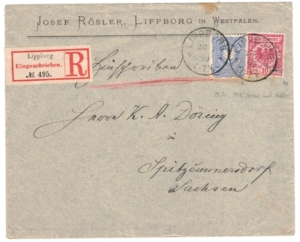 JOSEF RÖSLER, LIPPBORG IN WESTFALEN.
Lippborg
Eingeschrieben.
№ 495.
R
Einschreiben
LIPPBORG
Herrn K. A. Döring
in
Spitzcunnersdorf
Sachsen